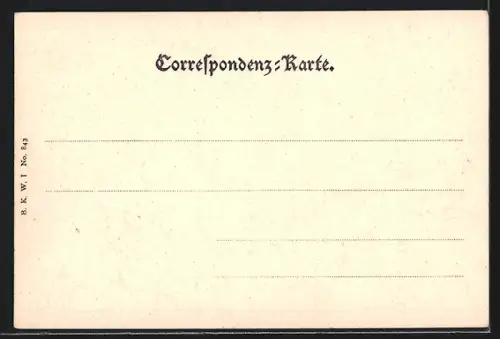 Correſpondenz-Karte.
B. K. W. I No. 843